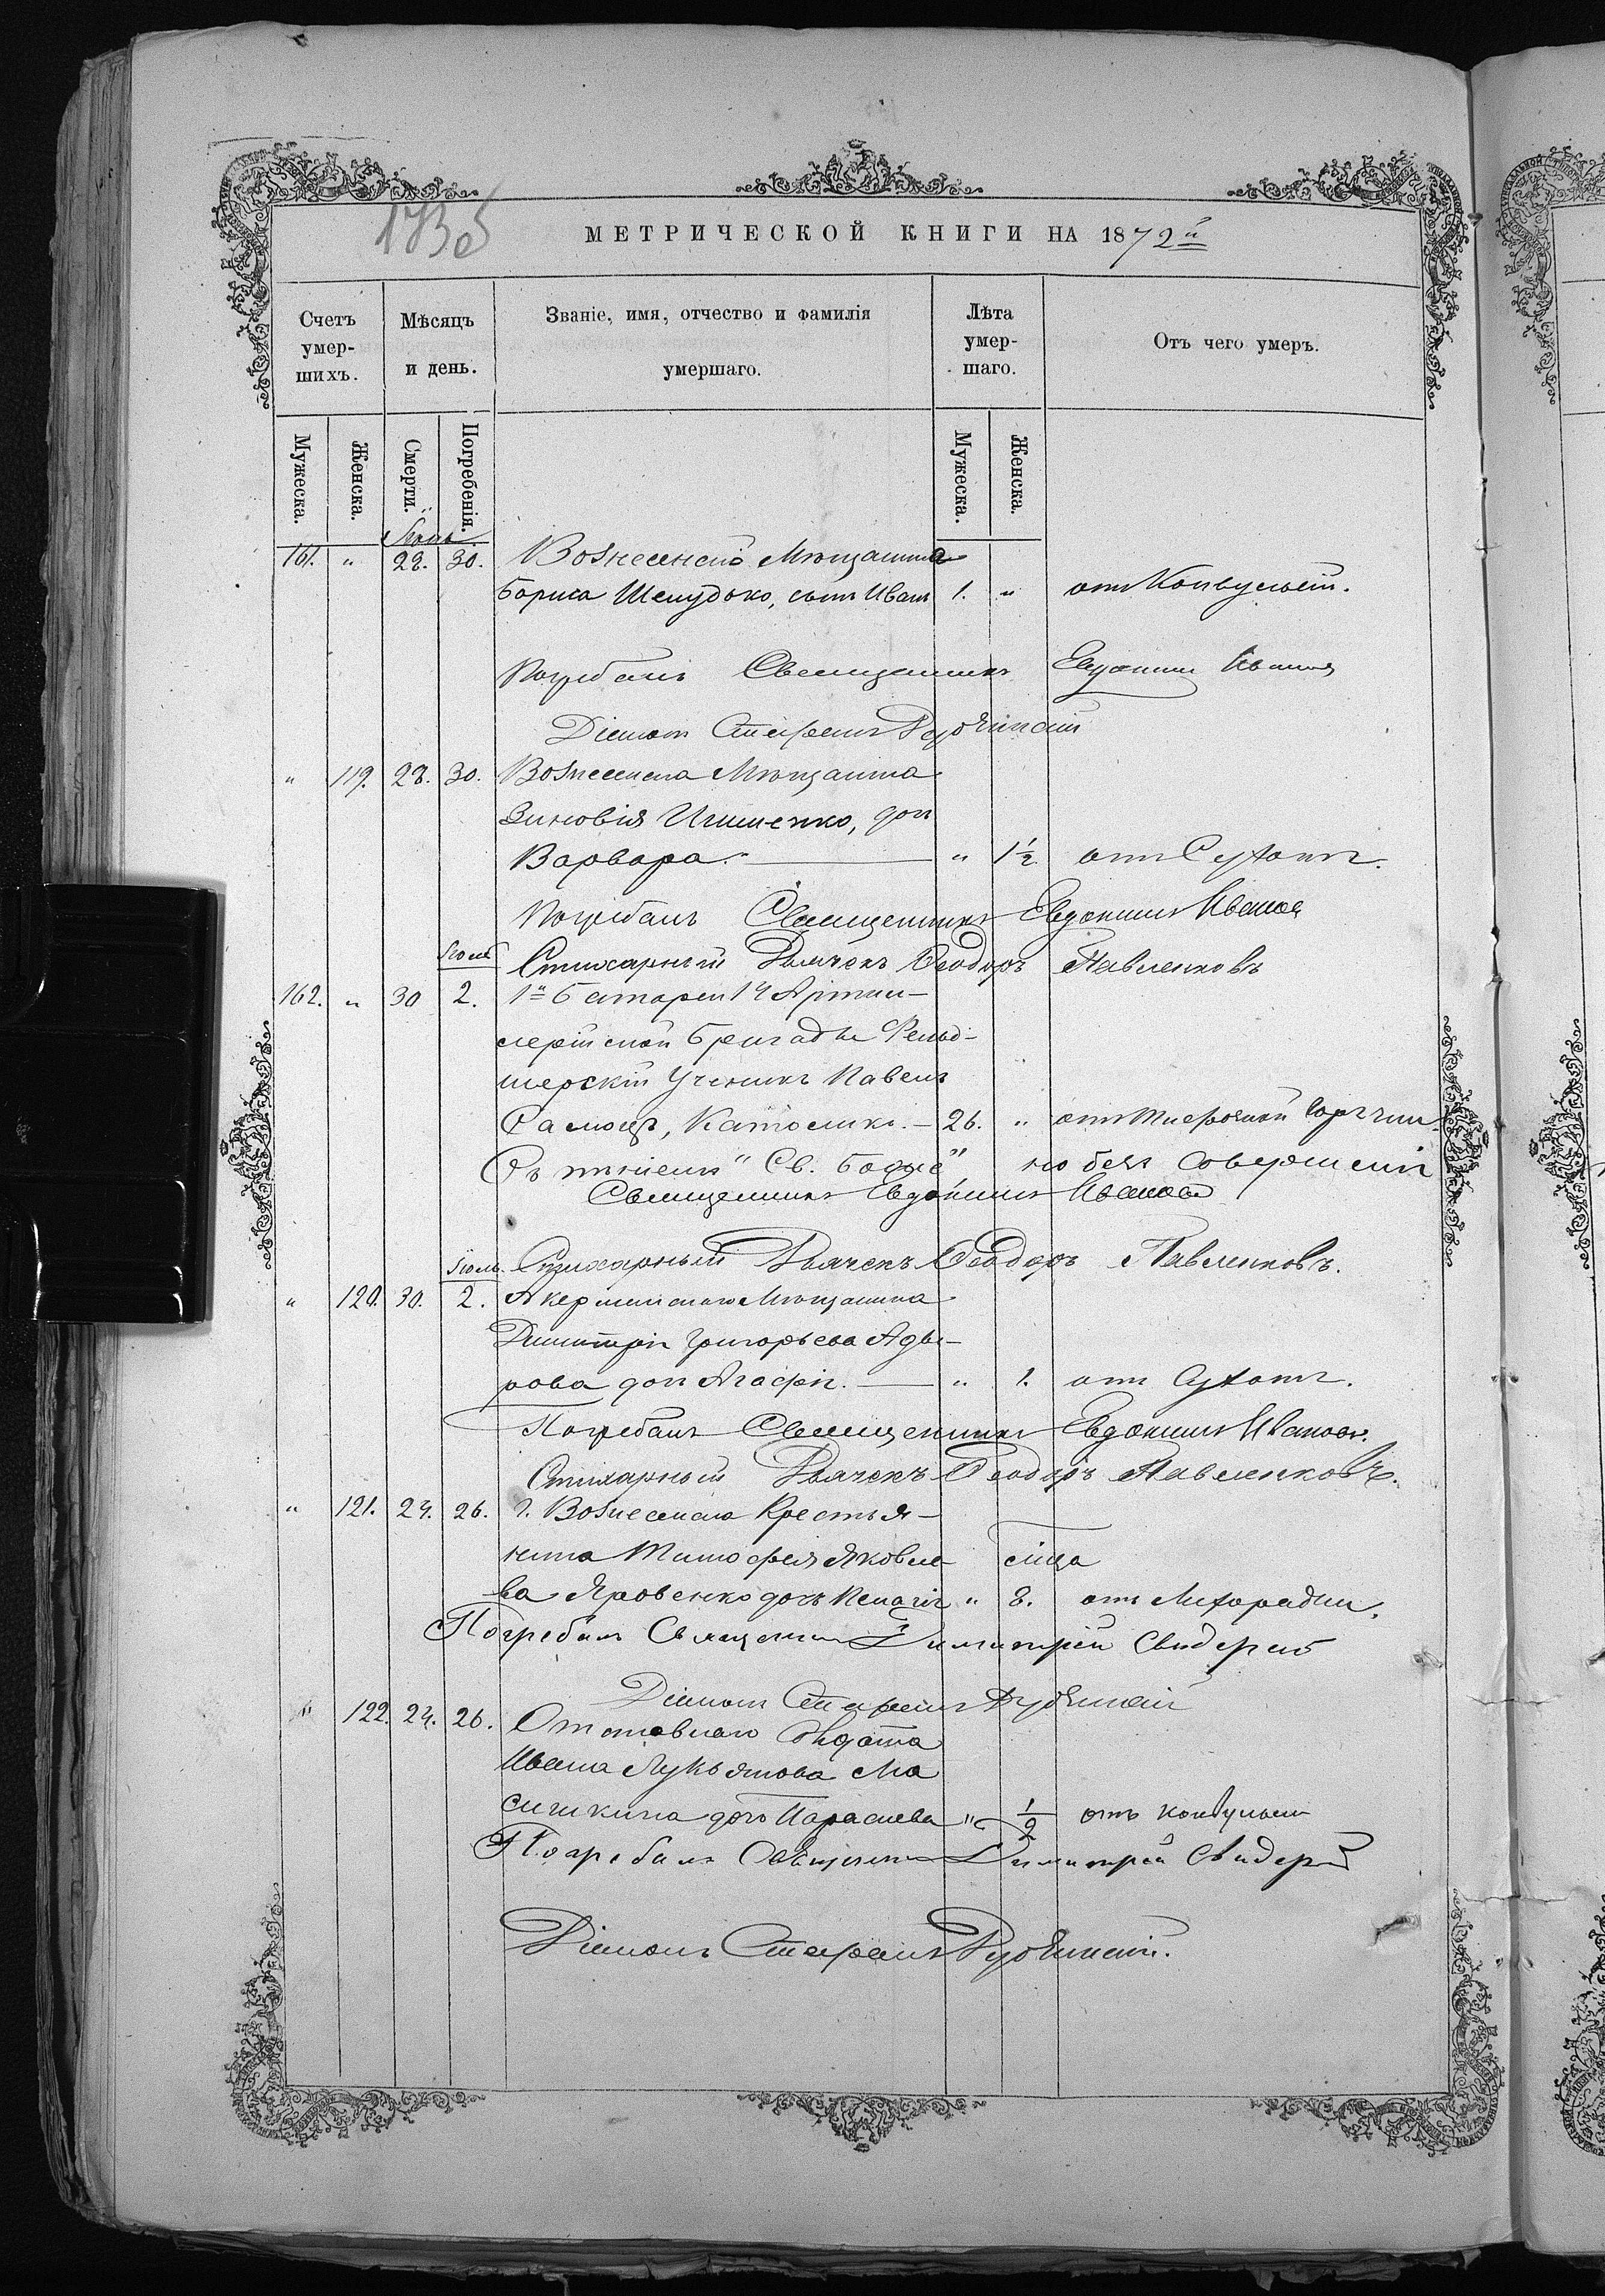 173об
МЕТРИЧЕСКОЙ КНИГИ НА 1872й
Счетъ умер-шихъ.
Мѣсяцъ и день.
Званіе, имя, отчество и фамилія умершаго.
Лѣта умер-шаго.
Отъ чего умеръ.
Мужеска.
Женска.
Смерти.
Погребенія.
Мужеска.
Женска.
Іюнь
161. " 28. 30. Вознесенскаго Мѣщанина
Бориса Шелудько, сынъ Иванъ 1. " отъ Конвульсій.
Погребалъ Священникъ Евдокимъ Ивановъ
Діаконъ Стефанъ
" 119. 28. 30. Вознесенскаго Мѣщанина
Зиновія Игнатенко, доч
Варвара. " 1½ отъ Сухотъ.
Погребалъ Священникъ Евдокимъ Ивановъ
Стихарный Дьячекъ Ѳеодоръ Павленковъ
Іюля
162. " 30 2. 1й Батареи 14 Артил-
лерійской Бригады Фельд-
шерскій Ученикъ Павелъ
Католикъ. 26. " отъ Тифозной Горячки.
Съ пѣніемъ "Св. Боже" но безъ
Священникъ Евдокимъ Ивановъ
Стихарный Дьячекъ Ѳеодоръ Павленковъ.
Іюль
" 120. 30. 2. Акерманскаго Мѣщанина
Димитрія Григорьева
рова доч Агафія. " 1. отъ Сухотъ.
Погребалъ Священникъ Евдокимъ Ивановъ.
Стихарный Дьячекъ Ѳеодоръ Павленковъ.
" 121. 24. 26. г. Вознесенска Крестья-
нина Тимофея Яковле-
ва Яровенко дочь Пелагія " 8. мѣсяца отъ Лихорадки.
Погребалъ Священникъ Димитрій
Діаконъ Стефанъ
" 122. 24. 26. Отставнаго Солдата
Ивана Лукьянова Ма
симкина дочь Параскева " ½ отъ конвульсіи
Погребалъ Священникъ Димитрій
Діаконъ Стефанъ